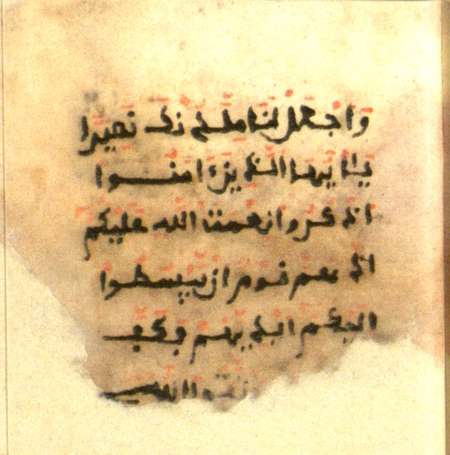 واجعل لنا ملدنك نصيرا
يايها الذين امنوا
اذكروا نعمت الله عليكم
اذ هم قوم ان يبسطوا
اليكم ايديهم فكف
الله